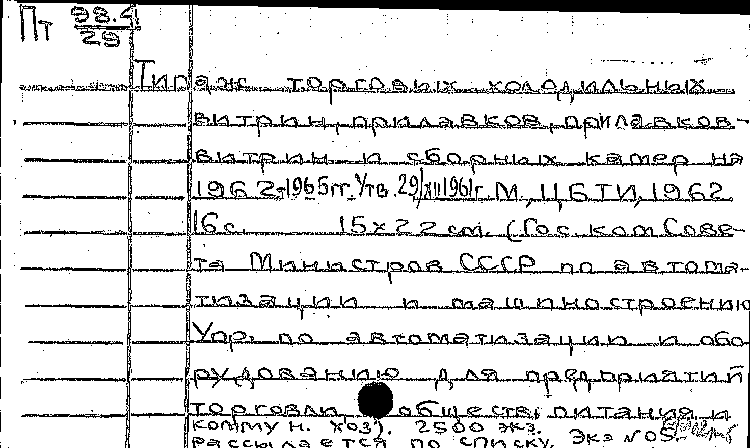 Пт 98.4
29
Типаж торговых холодильных
витрин, прилавков, прилавков-
витрин и сборных камер на
1962-1965гг. Утв. 29/XII 1961г. М., ЦБТИ, 1962
16с. 15х22 см. (Гос. ком. Сове-
та Министров СССР по автома-
тизации и машиностроению
Упр. по автоматизации и обо-
рудованию для предприятий
торговли, обществ. питания и
коммун. хоз). 2500 экз.
рассылается по списку. Экз №05.